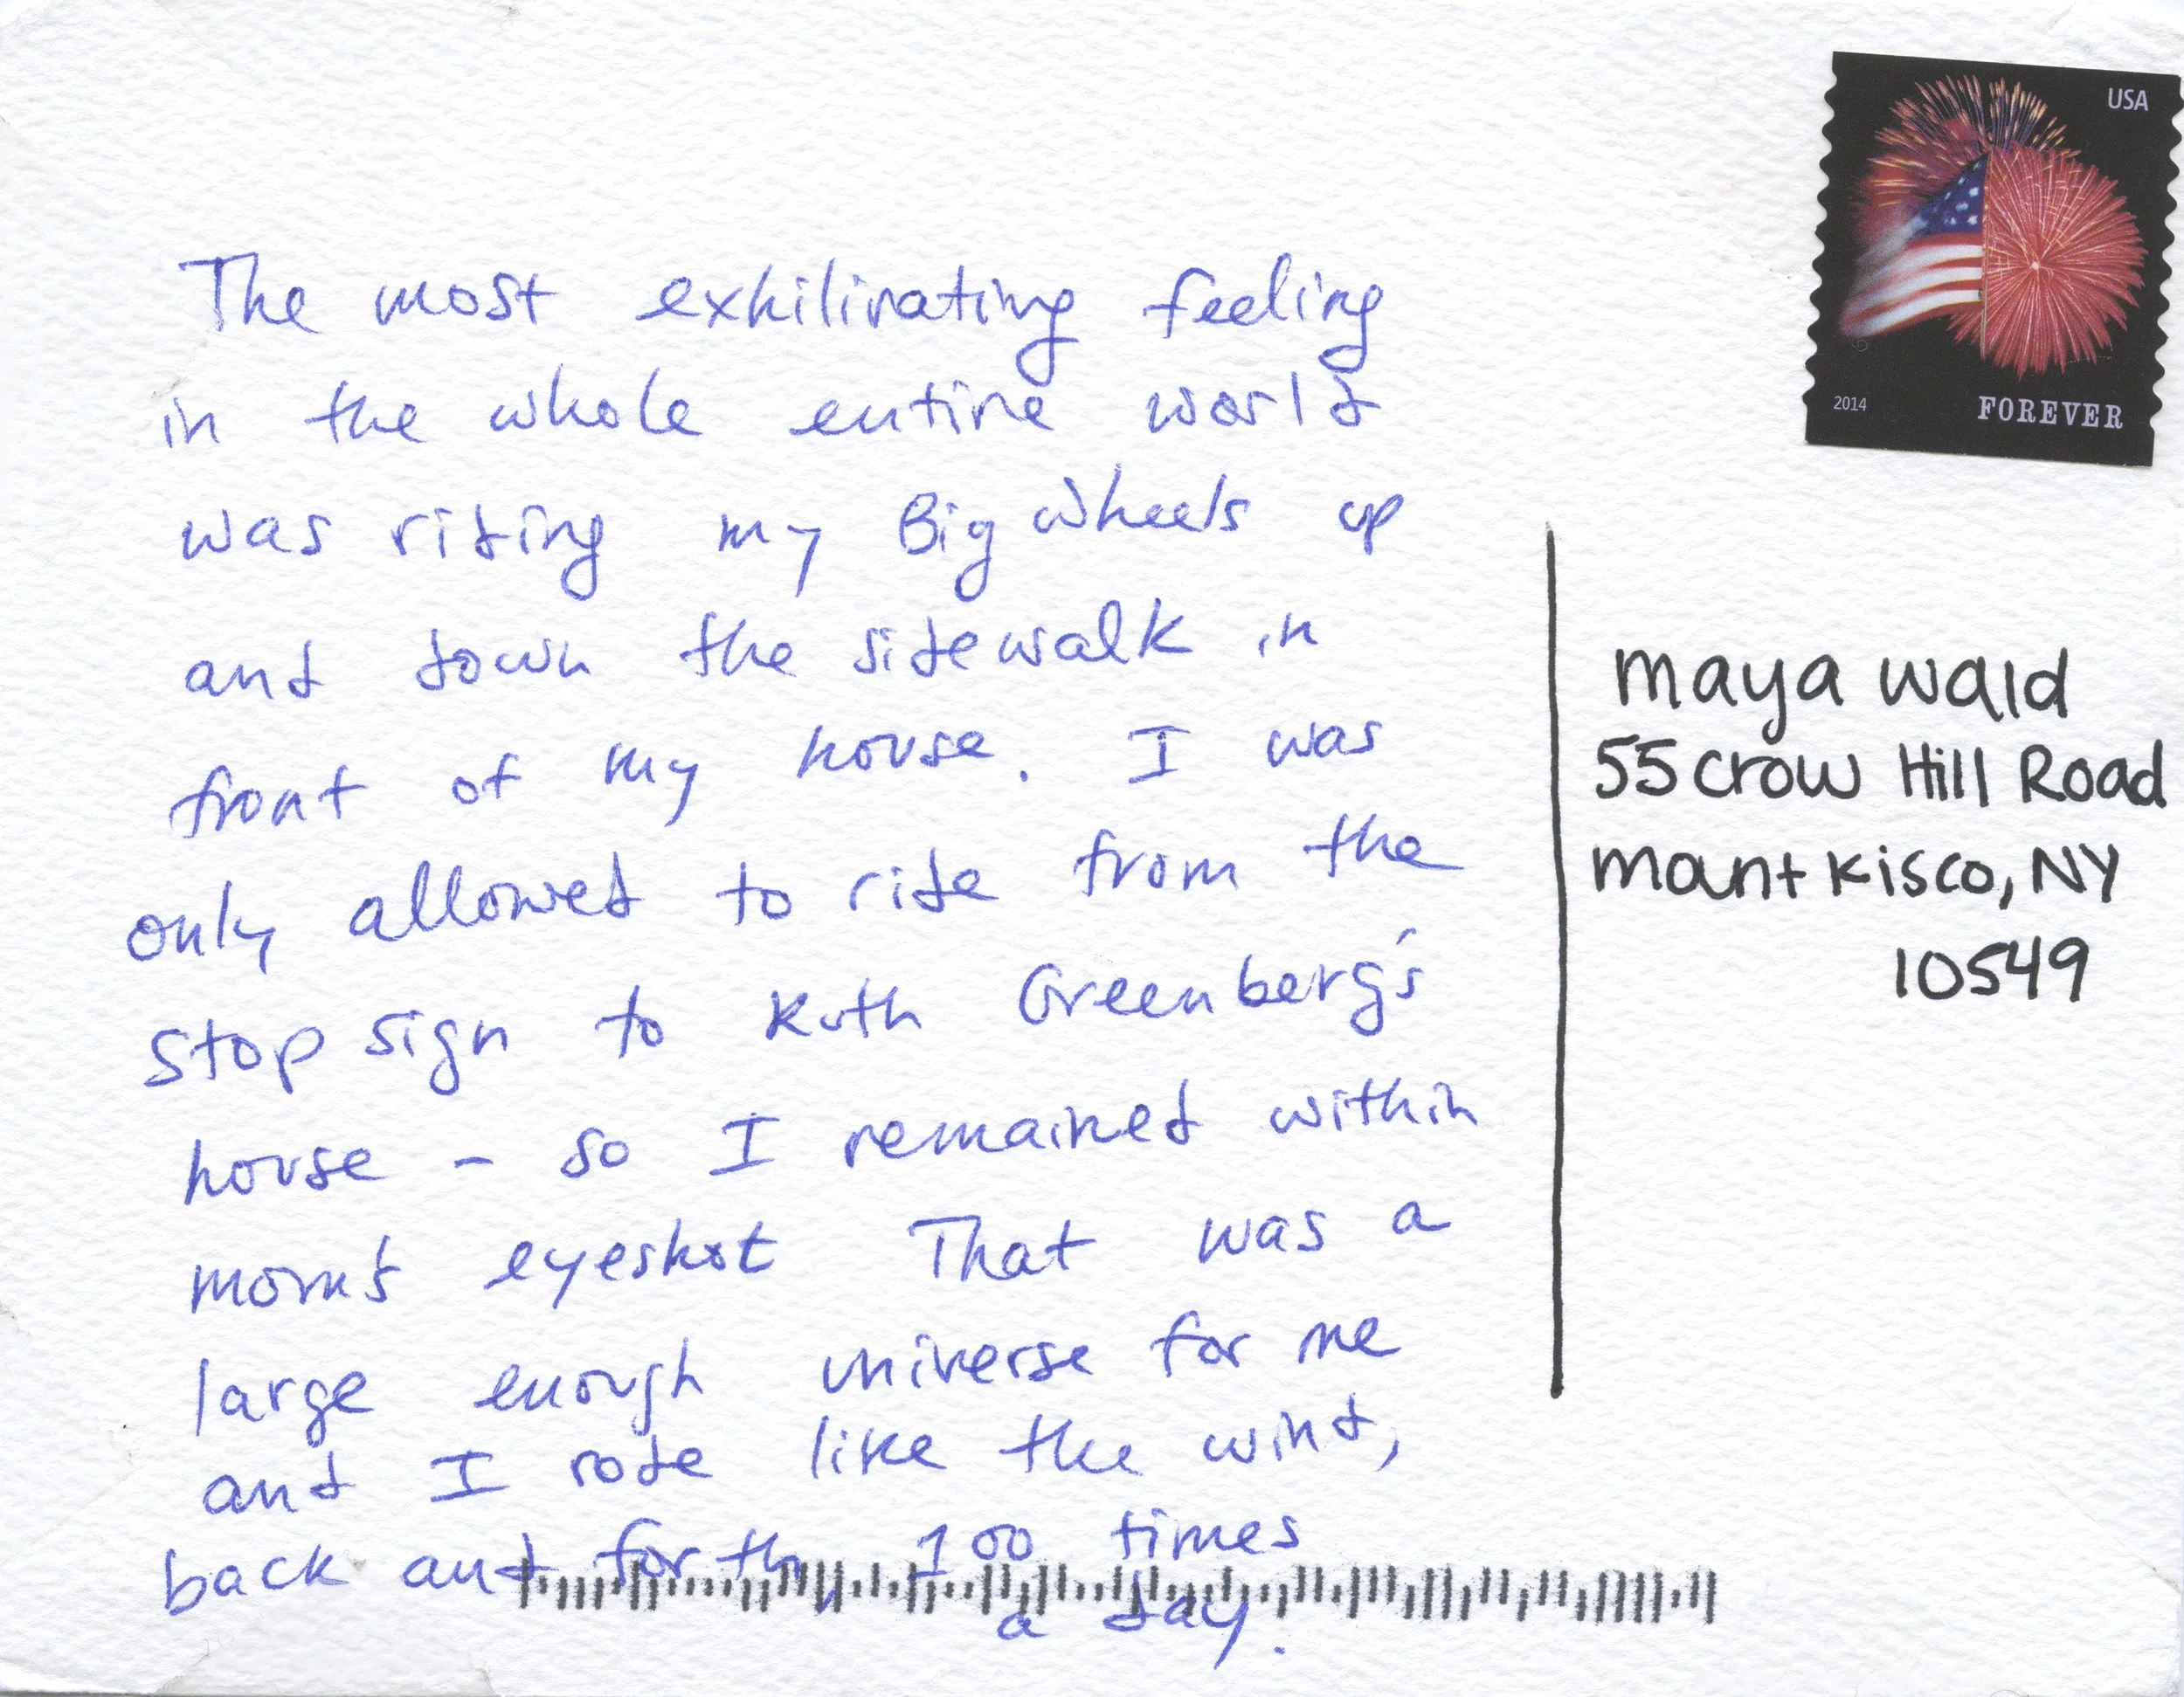 USA
2014
FOREVER
The most exhilirating feeling
in the whole entire world
was riding my Big wheels up
and down the sidewalk in
front of my house. I was
only allowed to ride from the
stop sign to Ruth Greenberg's
house – so I remained within
mom's eyeshot That was a
large enough universe for me
and I rode like the wind,
back and forth, 100 times
a day.
maya wald
55 Crow Hill Road
mount Kisco, NY
10549